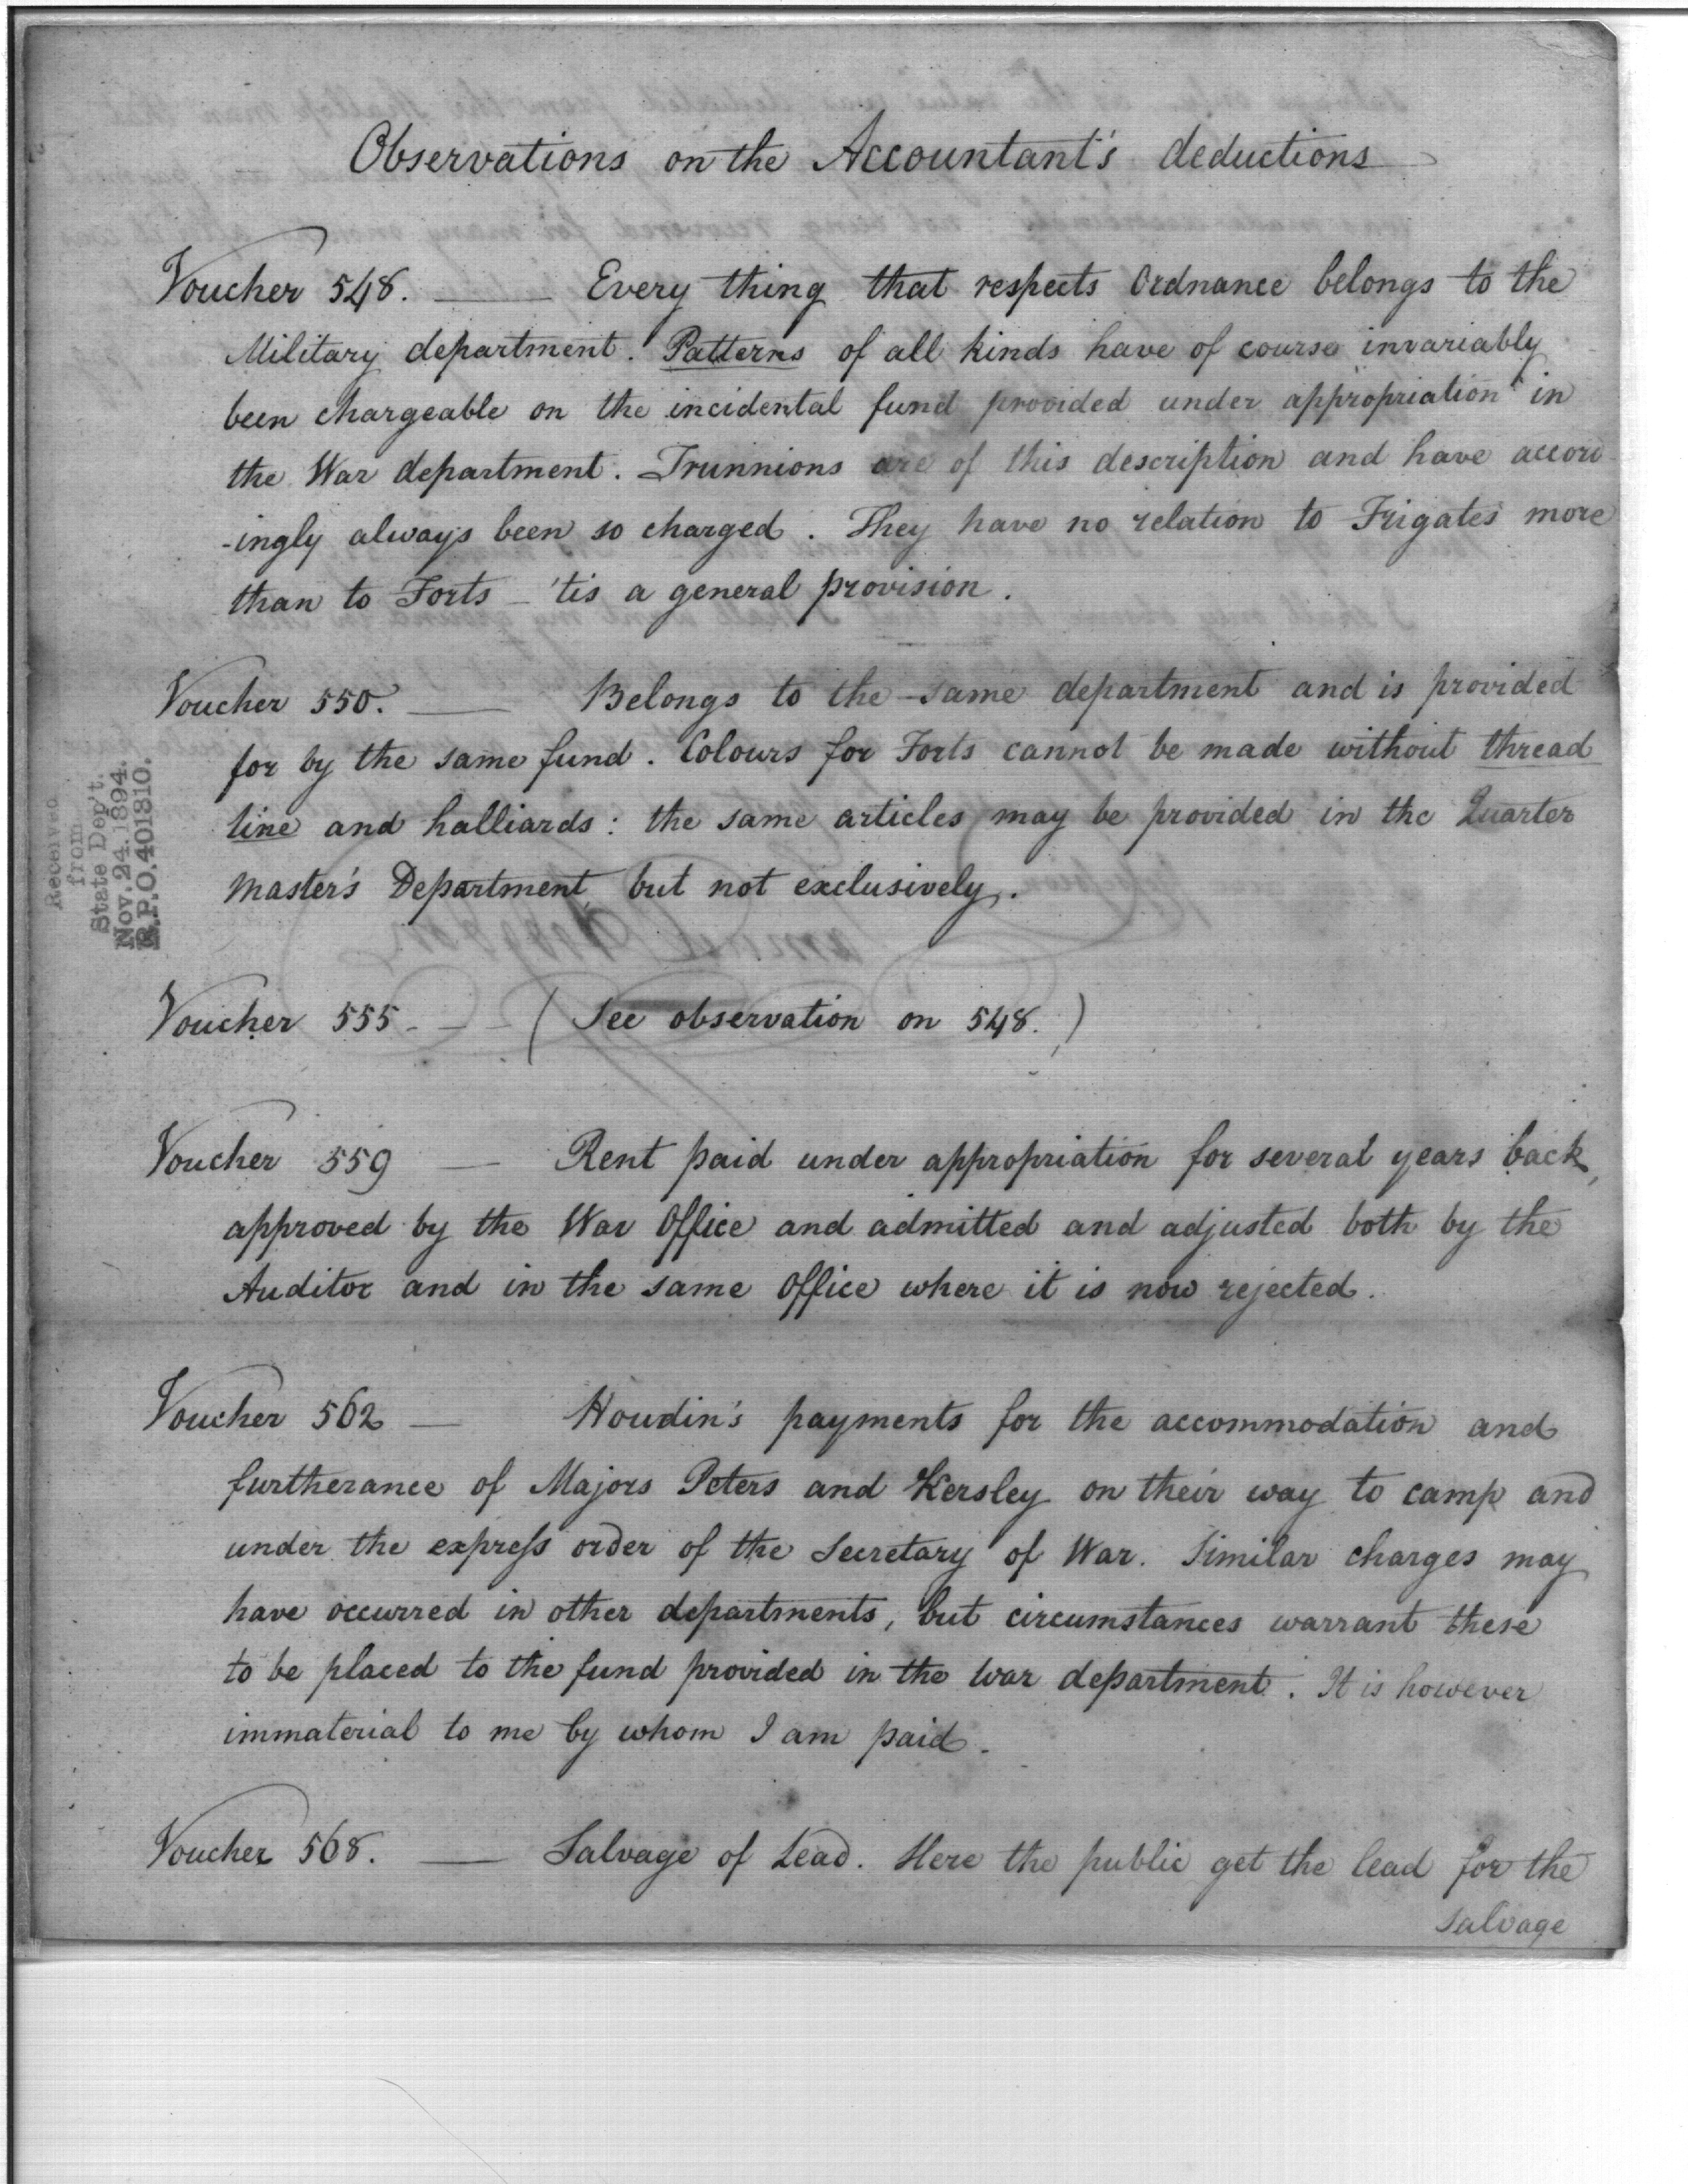 Observations on the Accountant's deductions
Voucher 548. Every thing that respects Ordnance belongs to the
Military department. Patterns of all kinds have of course invariably
been chargeable on the incidental fund provided under appropriation in
the War department. Trunnions are of this description and have accord
-ingly always been so charged. They have no relation to Frigates more
than to Forts - 'tis a general provision.
Voucher 550. Belongs to the same department and is provided
for by the same fund. Colours for Forts cannot be made without thread
line and halliards: the same articles may be provided in the Quarter
Master's Department, but not exclusively.
Voucher 555 - - - (See observation on 548.)
Voucher 559 — Rent paid under appropriation for several years back,
approved by the War Office and admitted and adjusted both by the
Auditor and in the same Office where it is now rejected.
Voucher 562 — Houdin's payments for the accommodation and
furtherance of Majors Peters and Kersley on their way to camp and
under the express order of the Secretary of War. Similar charges may
have occurred in other departments, but circumstances warrant these
to be placed to the fund provided in the War department. It is however
immaterial to me by whom I am paid.
Voucher 568. — Salvage of Lead. Here the public get the lead for the
Salvage
Received
from
State Dep't.
Nov. 24. 1894.
R.P.O. 401810.